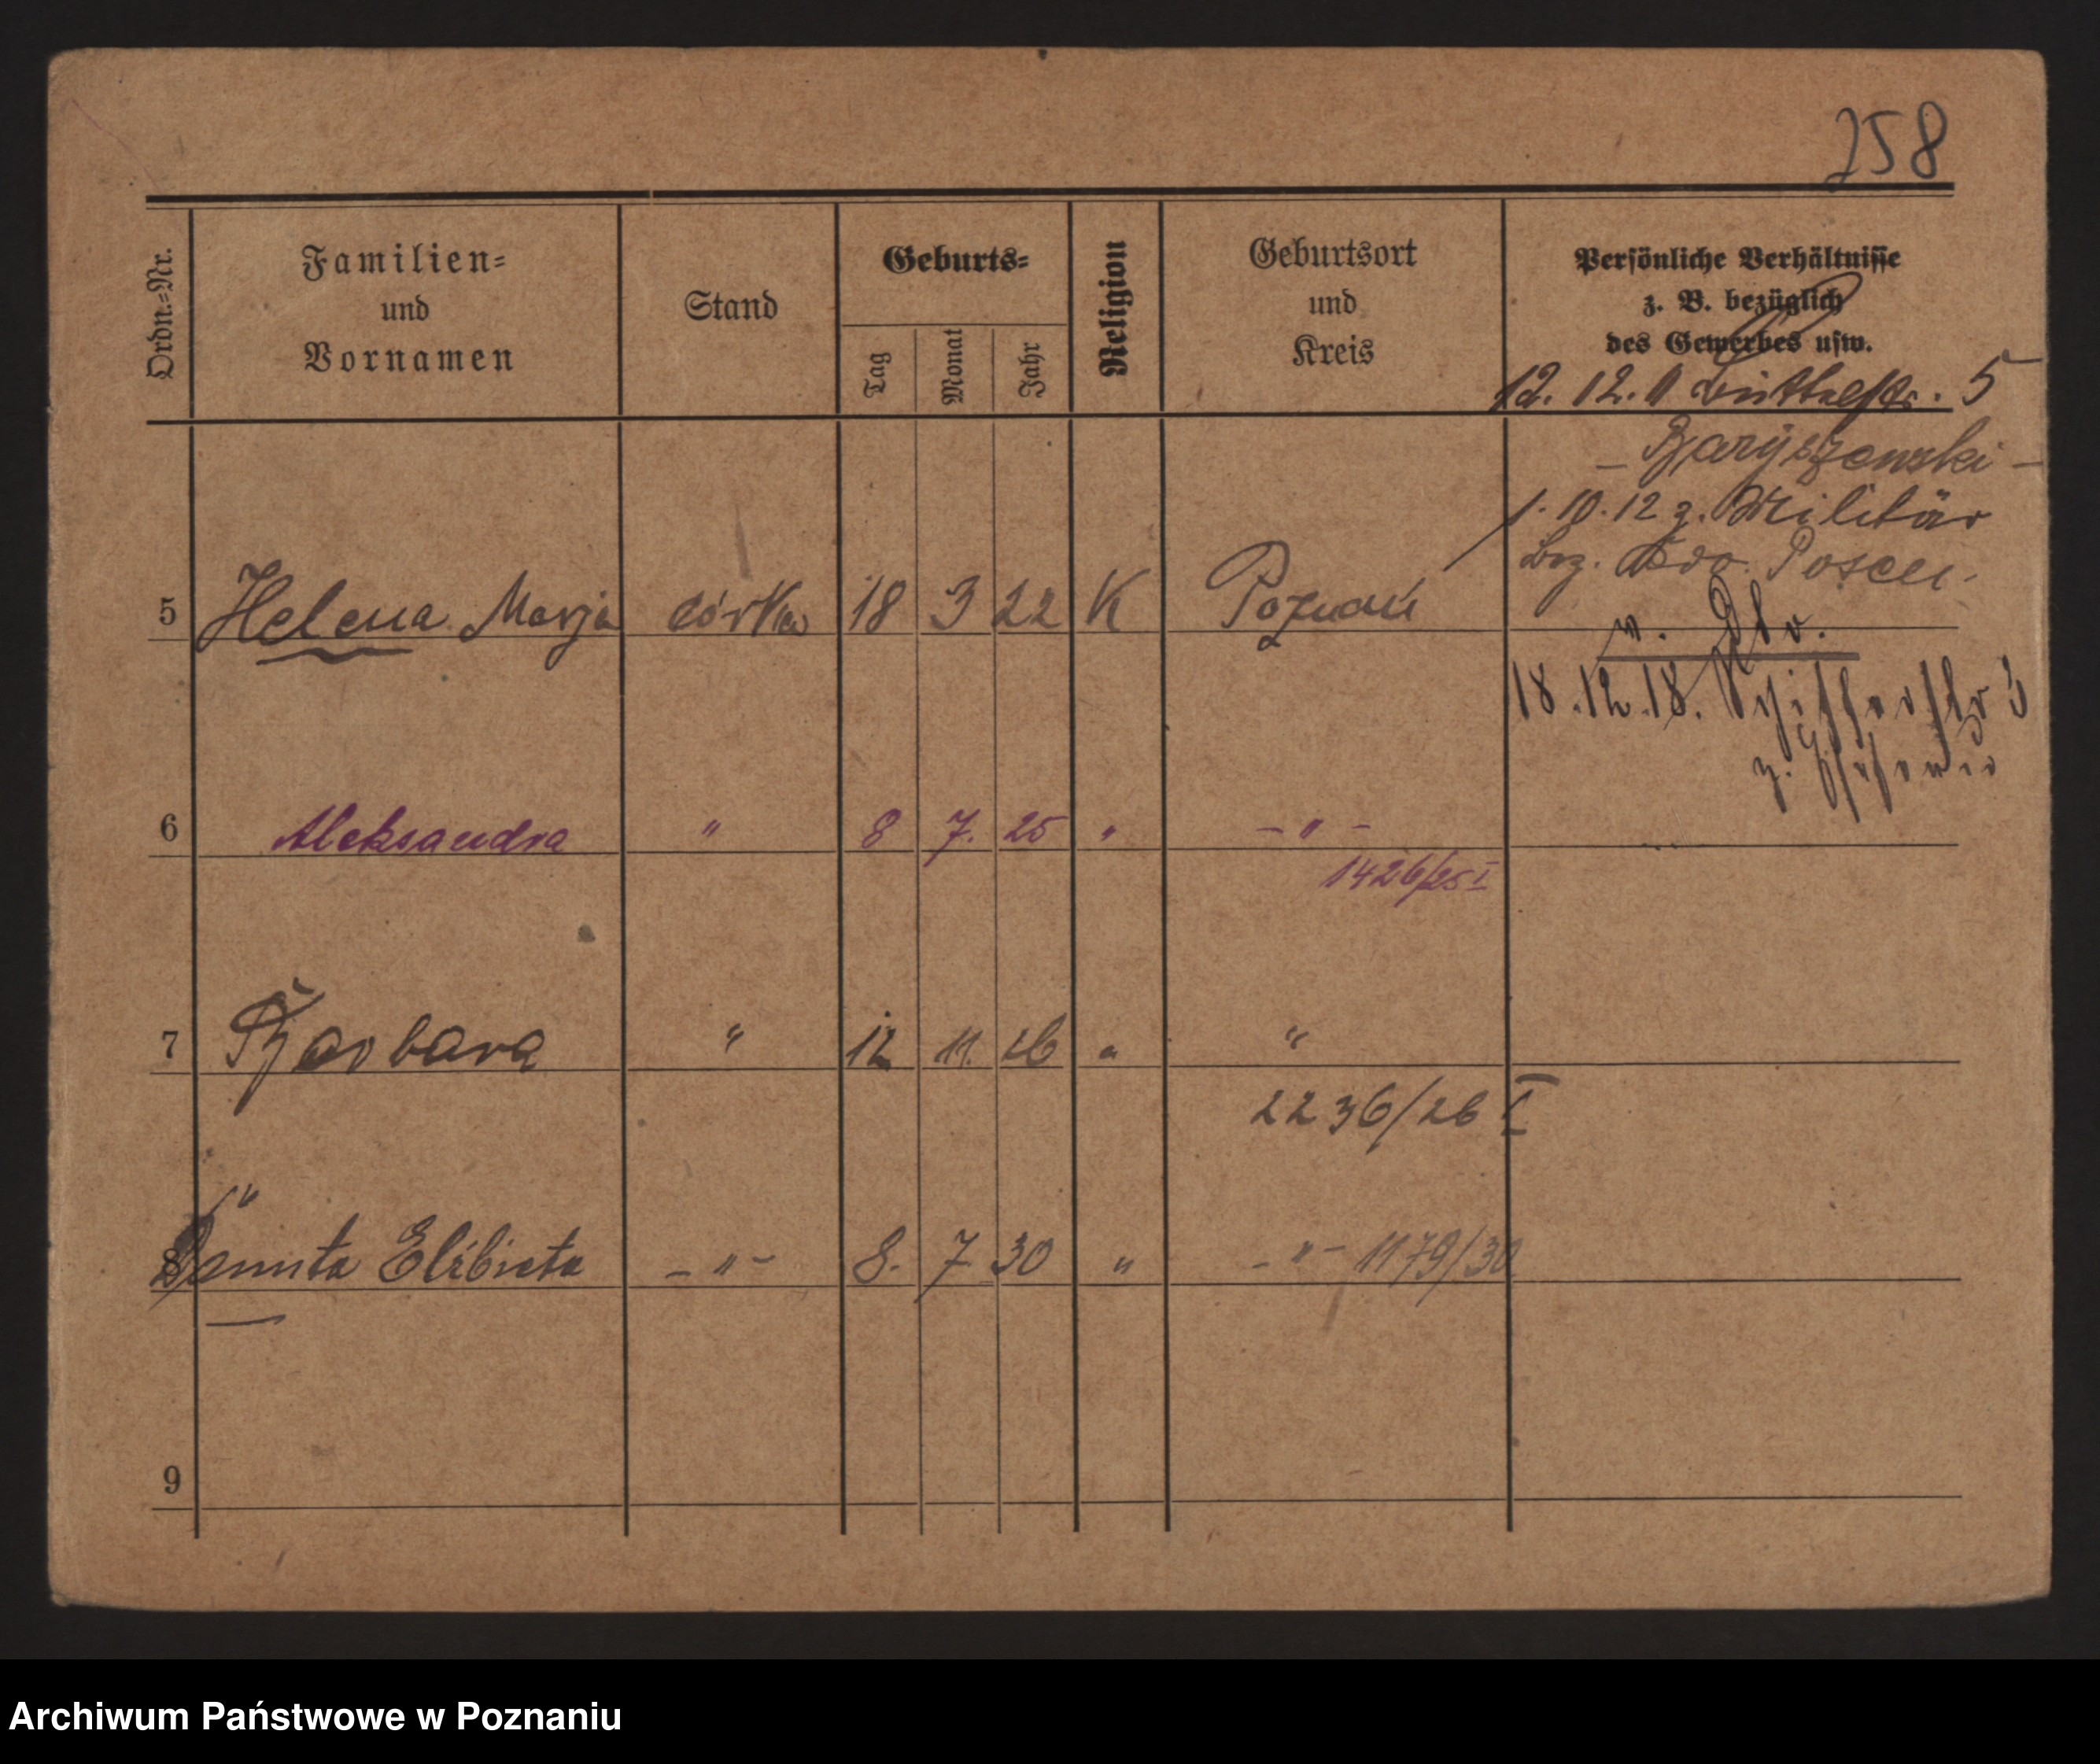 258
Ordn.=Nr.
Familien=
und
Vornamen
Stand
Geburts=
Tag
Monat
Jahr
Religion
Geburtsort
und
Kreis
Persönliche Verhältnisse
z. B. bezüglich
des Gewerbes usw.
12. 12. 11 Büttelstr. 5
– Baryszewski –
1. 10. 12 z. Militär
Posen.
5 Helena Marja córka 18 3 22 K Poznań
18.12.18. Schifferstr 3
6 Aleksandra " 8 7. 25 " – " –
1426/25 I
7 Barbara " 12 11. 26 " "
2236/26 I
"
8 Danuta Elżbieta – " – 8. 7 30 " – " – 1179/30
9
Archiwum Państwowe w Poznaniu